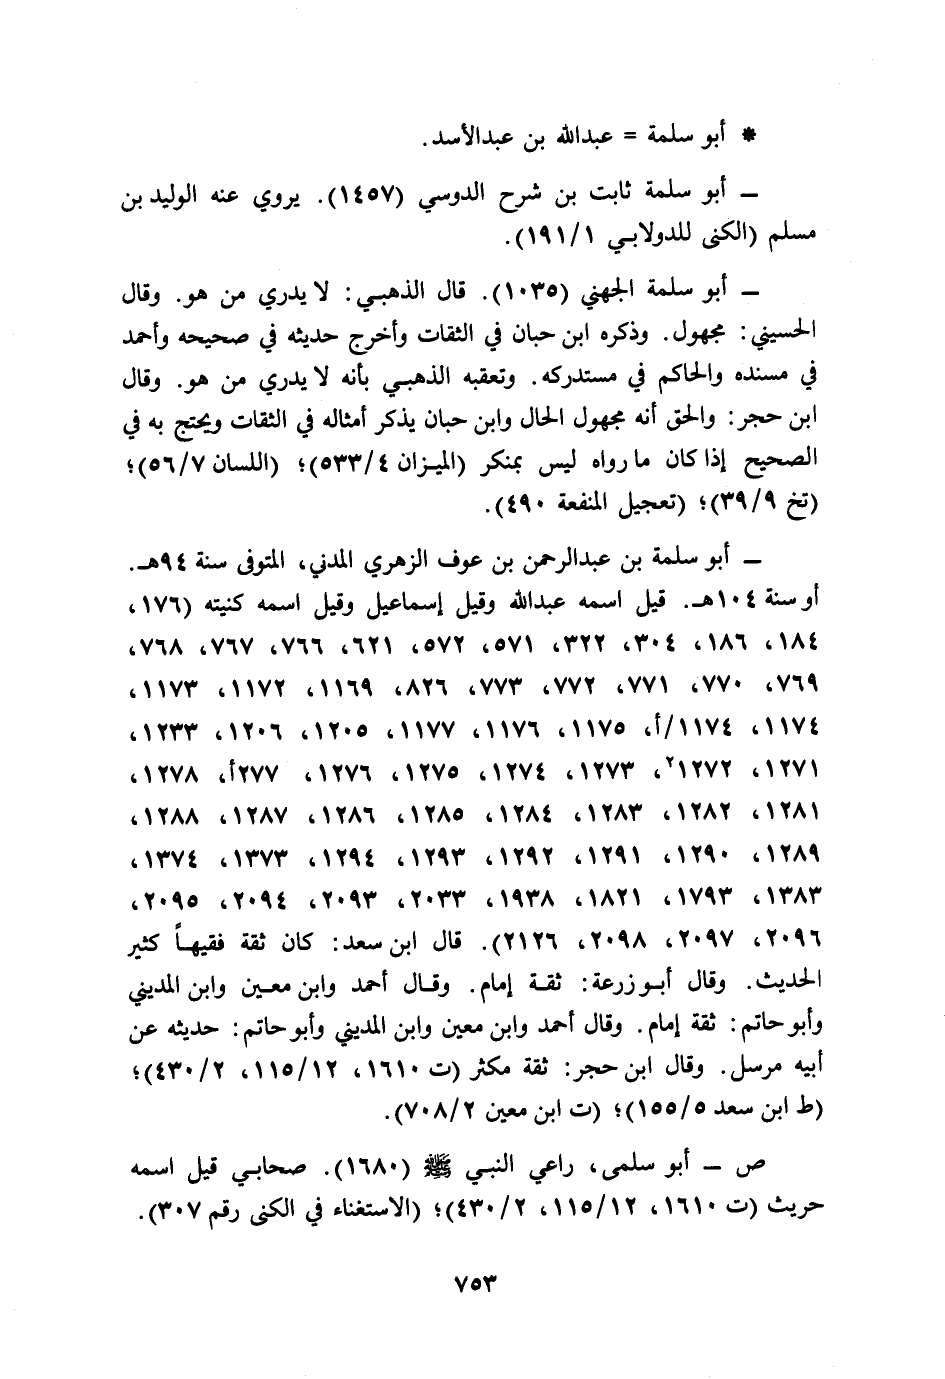 * أبو سلمة = عبدالله بن عبدالأسد.
ــ أبو سلمة ثابت بن شرح الدوسي (١٤٥٧). يروي عنه الوليد بن
مسلم (الكنى للدولابي ١/ ١٩١).
ــ أبو سلمة الجهني (١٠٣٥). قال الذهبي: لا يدري من هو. وقال
الحسيني: مجهول. وذكره ابن حبان في الثقات وأخرج حديثه في صحيحه وأحمد
في مسنده والحاكم في مستدركه. وتعقبه الذهبي بأنه لا يدري من هو. وقال
ابن حجر: والحق أنه مجهول الحال وابن حبان يذكر أمثاله في الثقات ويحتج به في
الصحيح إذا كان ما رواه ليس بمنكر (الميزان ٤/ ٥٣٣)؛ (اللسان ٧/ ٥٦)؛
(تخ ٩/ ٣٩)؛ (تعجيل المنفعة ٤٩٠).
ــ أبو سلمة بن عبدالرحمن بن عوف الزهري المدني، المتوفى سنة ٩٤هـ.
أو سنة ١٠٤هـ. قيل اسمه عبدالله وقيل إسماعيل وقيل اسمه كنيته (١٧٦،
١٨٤، ١٨٦، ٣٠٤، ٣٢٢، ٥٧١، ٥٧٢، ٦٢١، ٧٦٦، ٧٦٧، ٧٦٨،
٧٦٩، ٧٧٠، ٧٧١، ٧٧٢، ٧٧٣، ٨٢٦، ١١٦٩، ١١٧٢، ١١٧٣،
١١٧٤، ١١٧٤/أ، ١١٧٥، ١١٧٦، ١١٧٧، ١٢٠٥، ١٢٠٦، ١٢٣٣،
١٢٧١، ١٢٧٢٢، ١٢٧٣، ١٢٧٤، ١٢٧٥، ١٢٧٦، ٢٧٧أ، ١٢٧٨،
١٢٨١، ١٢٨٢، ١٢٨٣، ١٢٨٤، ١٢٨٥، ١٢٨٦، ١٢٨٧، ١٢٨٨،
١٢٨٩، ١٢٩٠، ١٢٩١، ١٢٩٢، ١٢٩٣، ١٢٩٤، ١٣٧٣، ١٣٧٤،
١٣٨٣، ١٧٩٣، ١٨٢١، ١٩٣٨، ٢٠٣٣، ٢٠٩٣، ٢٠٩٤، ٢٠٩٥،
٢٠٩٦، ٢٠٩٧، ٢٠٩٨، ٢١٢٦). قال ابن سعد: كان ثقة فقيهاً كثير
الحديث. وقال أبو زرعة: ثقة إمام. وقال أحمد وابن معين وابن المديني
وأبو حاتم: ثقة إمام. وقال أحمد وابن معين وابن المديني وأبو حاتم: حديثه عن
أبيه مرسل. وقال ابن حجر: ثقة مكثر (ت ١٦١٠، ١٢/ ١١٥، ٢/ ٤٣٠)؛
(ط ابن سعد ٥/ ١٥٥)؛ (ت ابن معين ٢/ ٧٠٨).
ص ــ أبو سلمى، راعي النبي ﷺ (١٦٨٠). صحابي قيل اسمه
حريث (ت ١٦١٠، ١٢/ ١١٥، ٢/ ٤٣٠)؛ (الاستغناء في الكنى رقم ٣٠٧).
٧٥٣